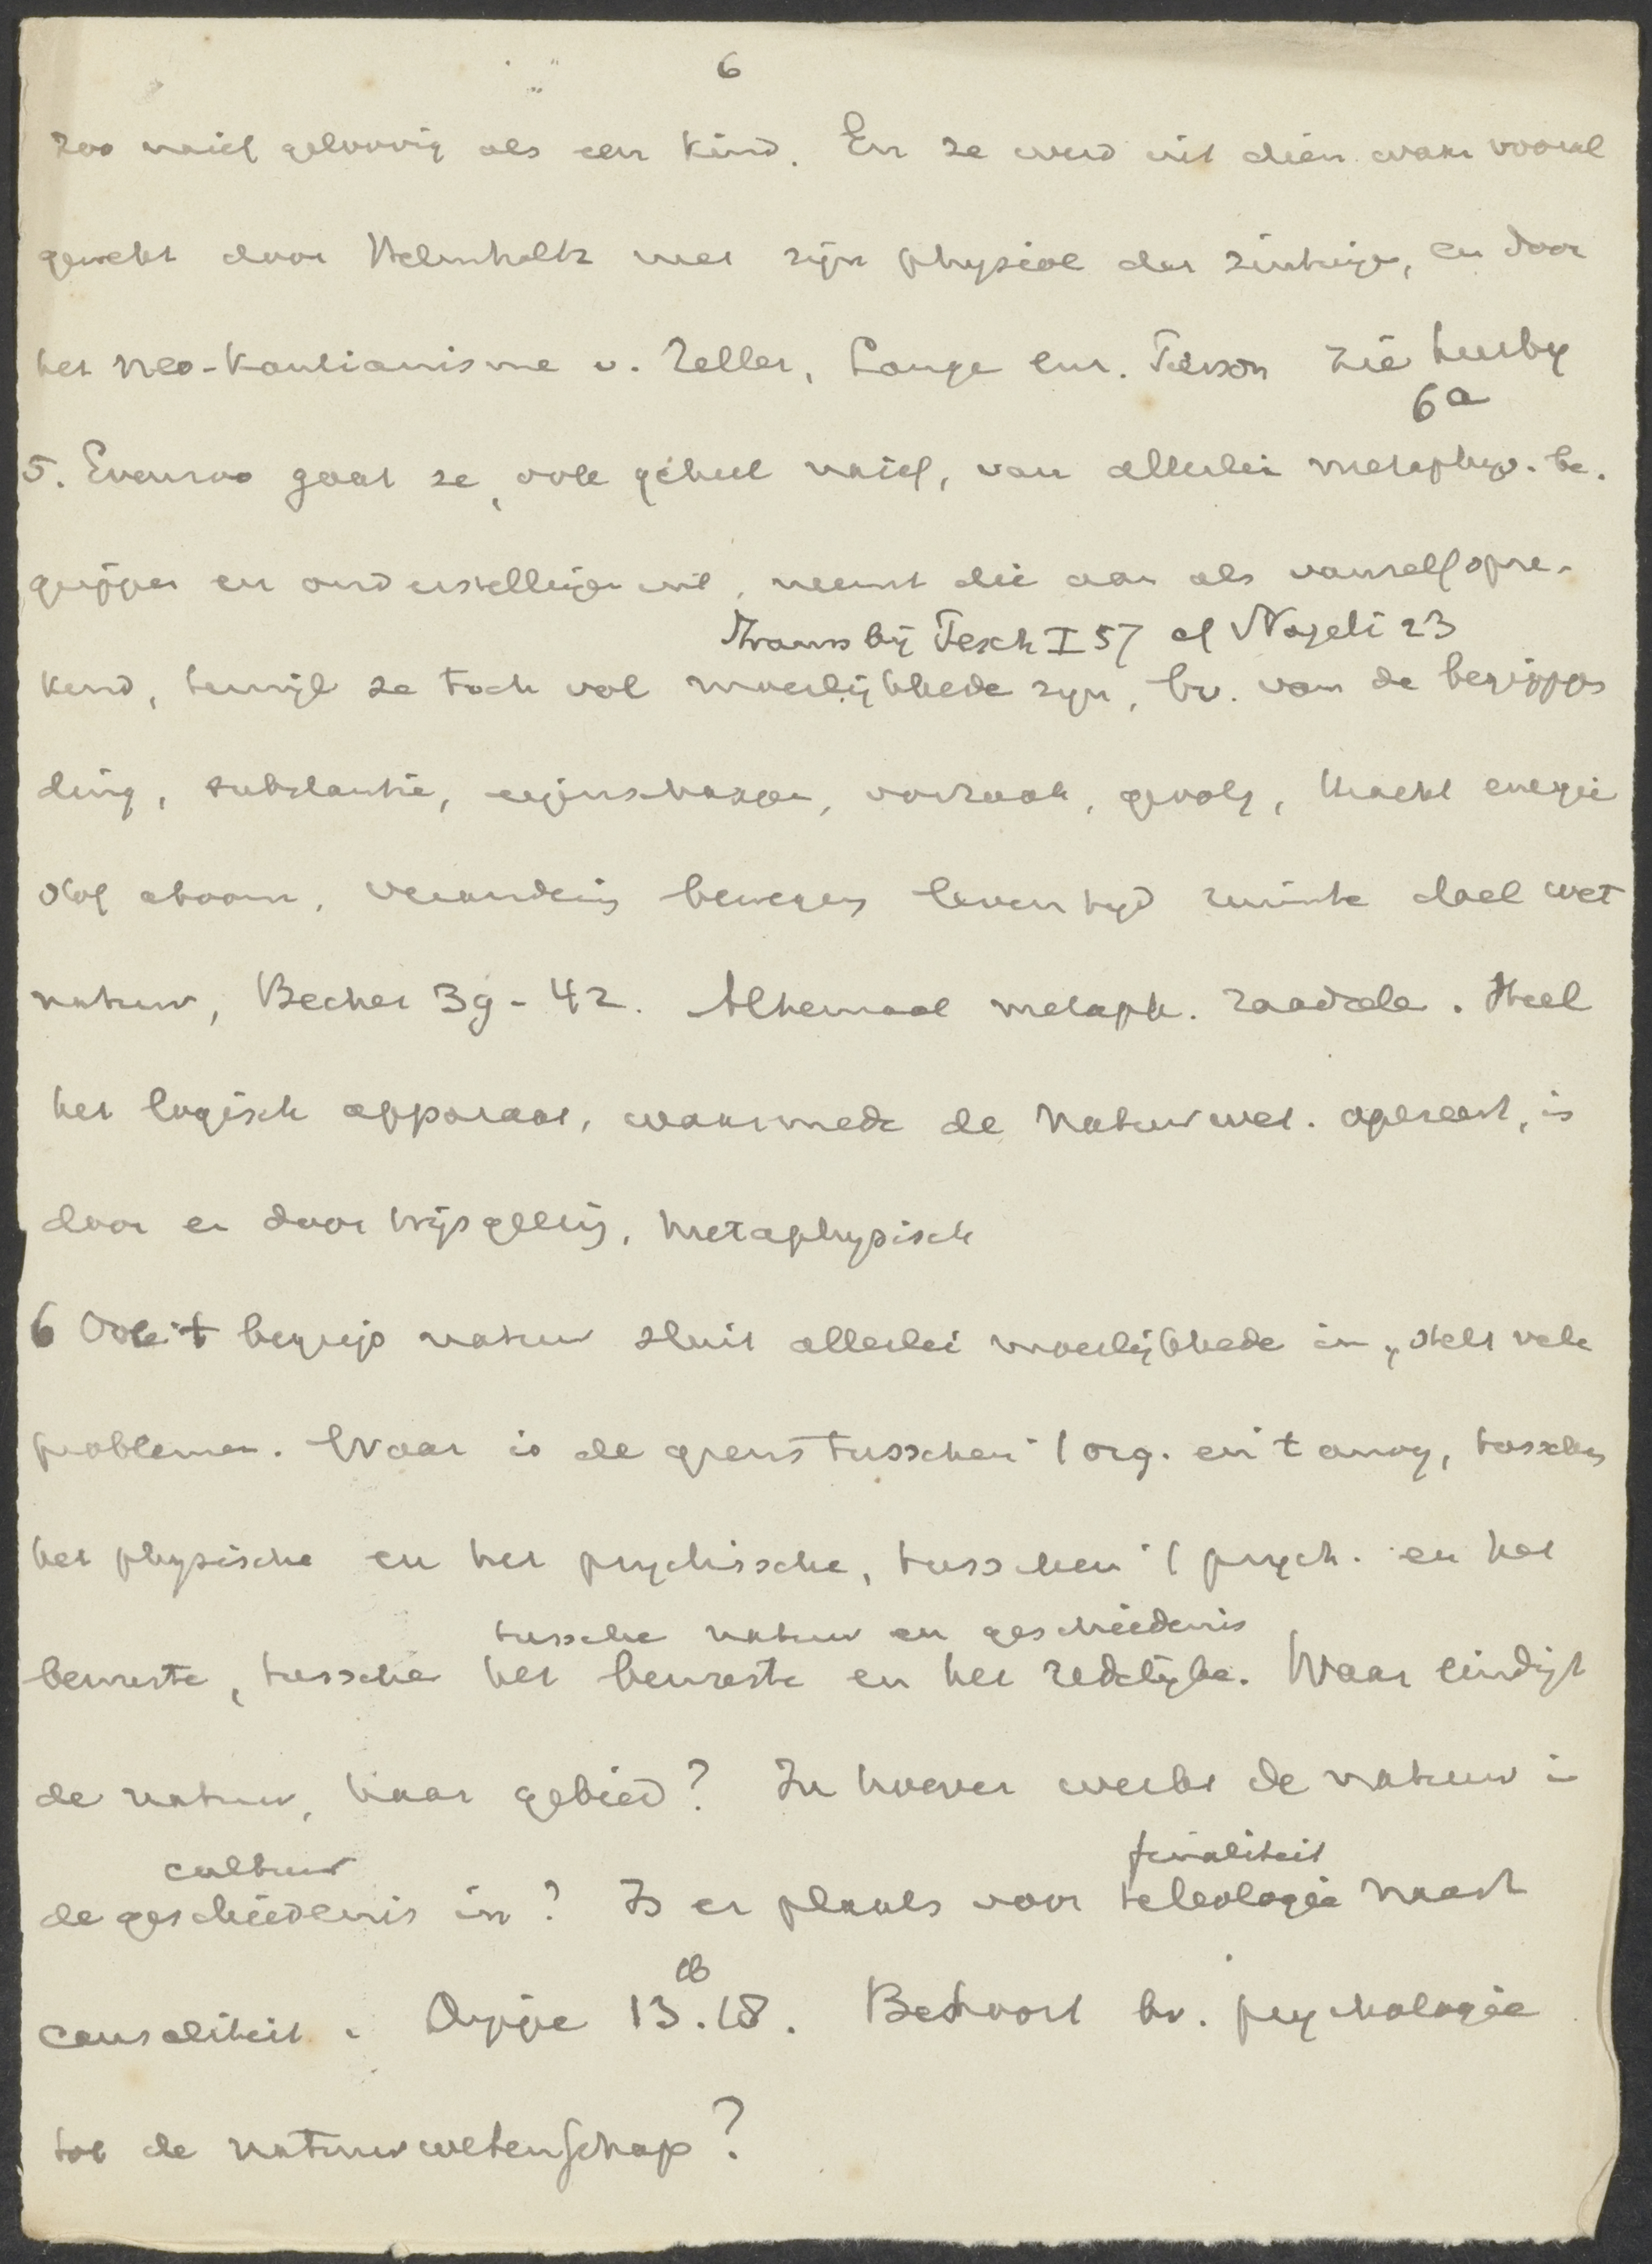 6
zoo naief geloovig als een kind. En ze werd uit dien waan vooral
gewekt door Helmholtz met zijn physiol der zintuigen, en door
het neo-Kantianisme v. Zeller, Lange enz. Pierson zie hierby
6a
5. Evenzoo gaat ze, ook geheel naief, van allerlei metaphys. be-
grippen en onderstellingen uit, neemt die aan als vanzelfspre-
bij Pesch I 57 cf Nageli 23
kend, terwijl ze toch vol moeilijkheden zijn, bv. van de begrippen
ding, substantie, eigenschappen, oorzaak, gevolg, kracht energie
stof atoom, verandering beweging leven tijd ruimte doel wet
natuur, Becher 39-42. Altemaal metaph. raadsels. Heel
het logisch apparaat, waarmede de natuurwet. opereert, is
door en door wijsgeerig, metaphysisch
6 Ook 't begrip natuur sluit allerlei moeilijkheden in, stelt vele
problemen. Waar is de grens tusschen 't org. en 't anorg, tusschen
het physische en het psychische, tusschen 't psych. en het
tusschen natuur en geschiedenis
bewuste, tusschen het bewuste en het redelijke. Waar eindigt
de natuur, haar gebied? In hoever werkt de natuur in
cultuur finaliteit
de geschiedenis in? Is er plaats voor teleologie naast
causaliteit. Dippe 13.18. Behoort bv. psychologie
tot de natuurwetenschap?